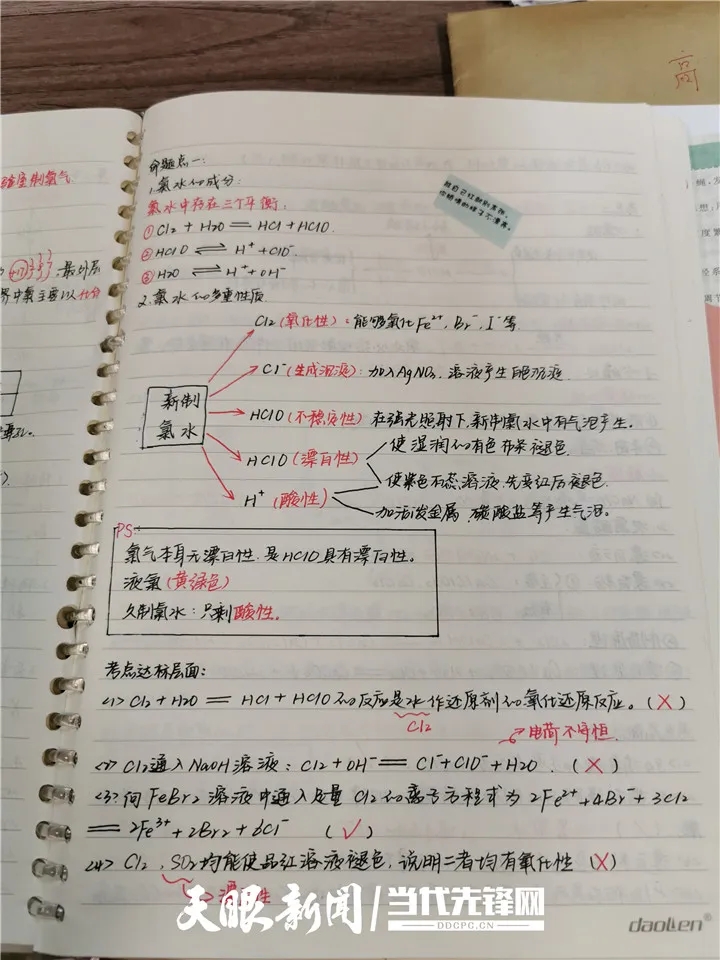 高
命题点一:
1.氯水的成分:
氯水中存在三个平衡:
①Cl2 + H2O == HCl + HClO.
②HClO ⇌ H⁺ + ClO⁻
③H2O ⇌ H⁺ + OH⁻
2.氯水的多重性质.
Cl2(氧化性): 能够氧化Fe²⁺, Br⁻, I⁻等.
Cl⁻(生成沉淀): 加入AgNO3, 溶液产生白色沉淀.
新制
氯水
HClO(不稳定性) 在强光照射下,新制氯水中有气泡产生.
HClO(漂白性)
使湿润的有色布条褪色.
使紫色石蕊溶液先变红后褪色.
H⁺(酸性)
加活泼金属、碳酸盐等产生气泡。
PS:
氯气本身无漂白性,是HClO具有漂白性。
液氯(黄绿色)
久制氯水:只剩酸性。
考点达标层面:
<1> Cl2 + H2O == HCl + HClO的反应是水作还原剂的氧化还原反应。(X)
Cl2
电荷不守恒
<2> Cl2通入NaOH溶液: Cl2 + OH⁻ == Cl⁻ + ClO⁻ + H2O. (X)
<3>向FeBr2溶液中通入足量Cl2的离子方程式为 2Fe²⁺ + 4Br⁻ + 3Cl2
== 2Fe³⁺ + 2Br2 + 6Cl⁻ (√)
<4> Cl2、SO2均能使品红溶液褪色,说明二者均有氧化性 (X)
天眼新闻 | 当代先锋网
DDCPC.CN
daolien®